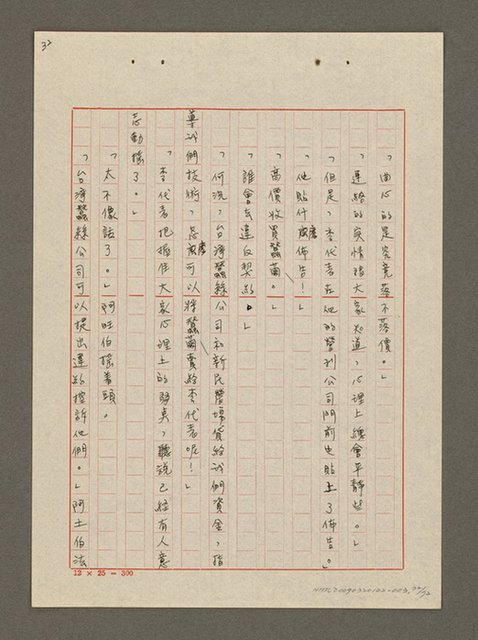 32
「由心的是究竟落不落價。」
「連絡的實情讓大家知道，心理上總會平靜些。」
「但是，李代表在他的營利公司門前也貼上了佈告。」
「他貼什麼佈告！」
「高價收買蠶繭。」
「誰會去違反契約。」
「何況，台灣蠶絲公司和新民農場貸給我們資金，指
導我們技術，怎麼可以將蠶繭賣給李代表呢！」
「李代表把握住大家心理上的弱點，聽說已經有人意
志動搖了。」
「太不像話了。」阿旺伯搖着頭。
「台灣蠶絲公司可以提出違約控訴他們。」阿土伯法
12 × 25 = 300